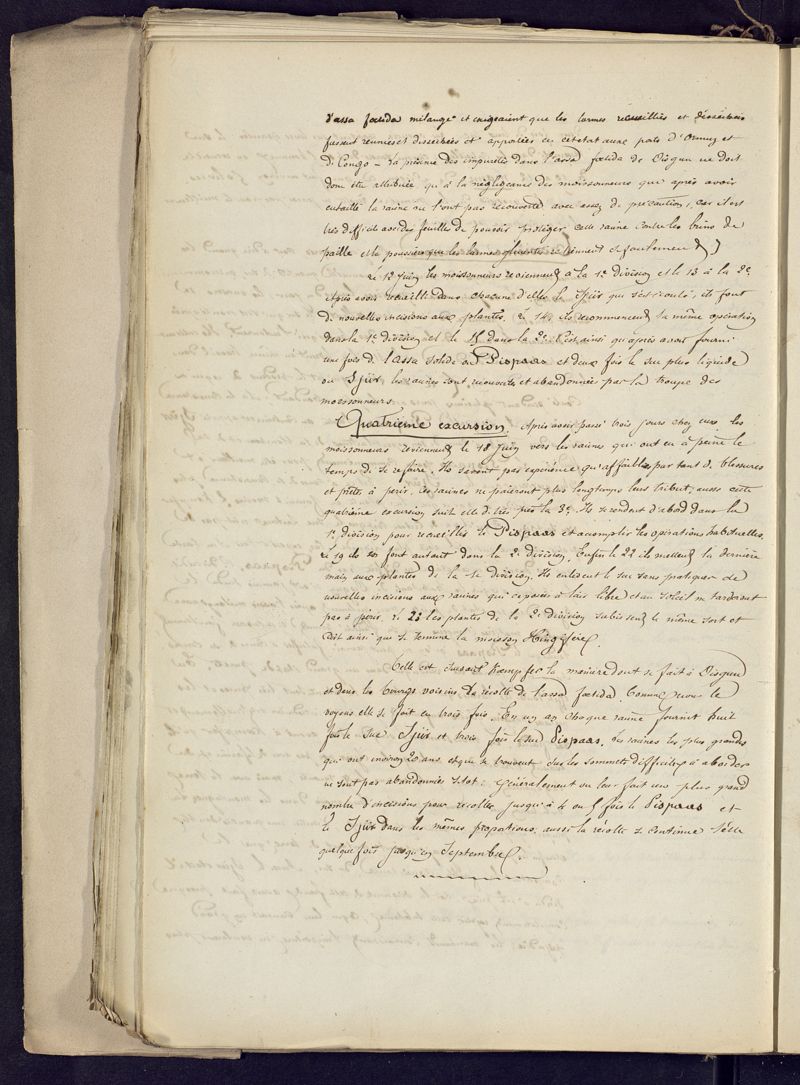 d'assa foetida mélangé et exigeaient que les larmes recueillies et désséchées
fussent réunies et desséchées et apportées en cet état aux ports d'Ormuz et
de Congo – La présence des impuretés dans l'assa foetida de Disgun ne doit
donc être attribuée qu'à la négligence des moissonneurs que après avoir
entaillé la racine ne l'ont pas recouverte avec assez de précaution, car il est
très difficile avec des feuilles de pouvoir protéger cette racine contre les brins de
paille et la poussière que les larmes gluantes retiennent si facilement)
Le 12 Juin les moissonneurs reviennent à la 1e division et le 13 à la 2e.
Après avoir recueilli dans chacune d'elles le Sjiir qui s'est écoulé, ils font
de nouvelles incisions aux plantes. Le 14, ils recommencent la même opération
dans la 1e division et le 15 dans la 2e. C'est ainsi qu'après avoir fourni
une fois de l'assa solide ou Pispaas et deux fois le suc plus liquide
ou Sjiir, les racines sont recouvertes et abandonnées par la troupe des
moissonneurs.
Quatrieme excursion. Après avoir passé trois jours chez eux, les
moissonneurs reviennent le 18 Juin vers les racines qui ont eu à peine le
temps de se refaire. Ils savent par expérience qu'affaiblies par tant de blessures
et prêtes à périr, ces racines ne paieraient plus longtemps leur tribut, aussi cette
quatrieme excursion suit elle de très près la 3e. Ils se rendent d'abord dans la
1e division pour recueillir le Pispaas et accomplir les opérations habituelles.
Le 19 ils en font autant dans la 2e division. Enfin le 22 ils mettent la dernière
main aux plantes de la 1e division. Ils enlèvent le suc sans pratiquer de
nouvelles incisions aux racines qui exposées à l'air libre et au soleil ne tarderont
pas à périr. Le 23 les plantes de la 2e division subissent le même sort et
c'est ainsi que se termine la moisson Hingifère.
Telle est suivant Kaempfer la manière dont se fait à Disgun
et dans les bourgs voisins la récolte de l'assa foetida. Comme nous le
voyons elle se fait en trois fois. En un an chaque racine fournit huit
fois le suc Sjiir et trois fois le suc Pispaas. Les racines les plus grandes
qui ont environ 20 ans et qui se trouvent sur les sommets difficiles à aborder
ne sont pas abandonnées sitot: généralement on leur fait un plus grand
nombre d'incisions pour récolter jusqu'à 4 ou 5 fois le Pispaas et
le Sjiir dans les mêmes proportions, aussi la récolte se continue t'elle
quelque fois jusqu'en Septembre.